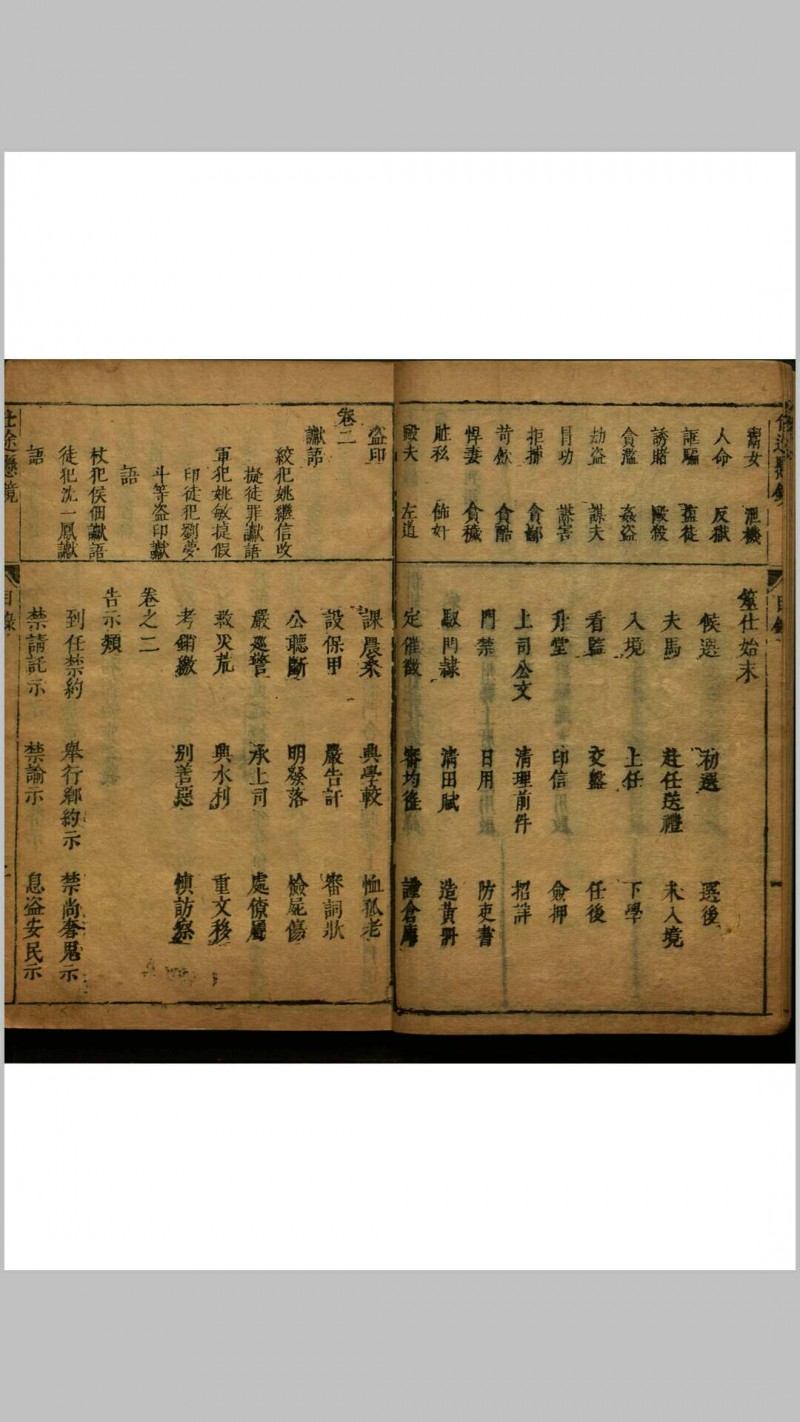 鬻女　泄機
人命　反獄
誆騙　盜徒
誘賭　毆殺
貪濫　姦盜
劫盜　謀夫
冒功　謀害
拒捕　貪鄙
苛飲　貪酷
悍妻　貪穢
贓私　佈奸
毆夫　左道
筮仕始末
候選　初選　選後
夫馬　赴任送禮　未入境
入境　上任　下學
看監　交盤　任後
升堂　印信　僉押
上司公文　清理前件　招詳
門禁　日用　防吏書
馭門隸　清田賦　造黃冊
定催徵　審均徭　謹倉庫
盜印
卷二
讞語
絞犯姚繼信改
擬徒罪讞語
軍犯姚敏提假
印徒犯劉夢
斗等盜印讞
語
杖犯侯佃讞語
徒犯沈一鳳讞
語
課農桑　興學較　恤孤老
設保甲　嚴告訐　審詞狀
公聽斷　明發落　檢屍傷
嚴巡警　承上司　處僚屬
救災荒　興水利　重文移
考銷繳　別善惡　慎訪察
卷之二
告示類
到任禁約　舉行鄉約示　禁尚奢兇示
禁請託示　禁諭示　息盜安民示
仕途懸鏡
目錄